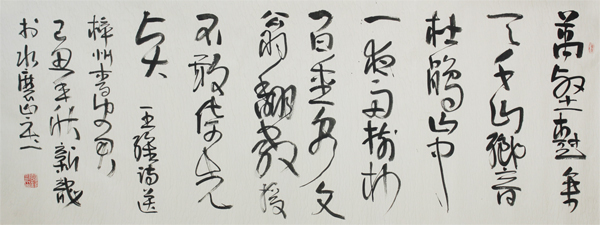 萬壑樹參
天千山響
杜鵑山中
一夜雨樹杪
百重泉文
翁翻教授
不敢倚先
賢 王維詩送
梓州李使君
己丑年秋新
於水磨